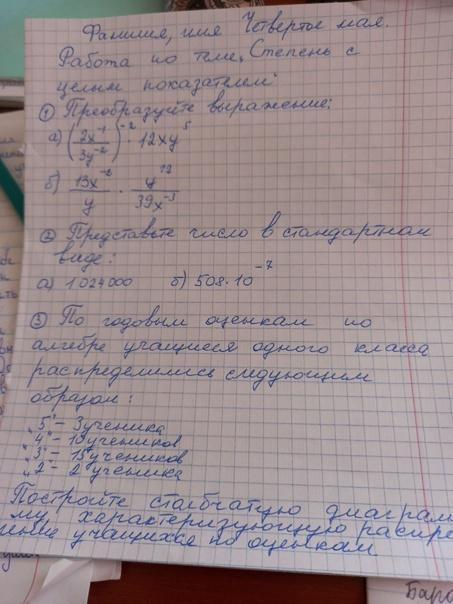 Фамилия, имя Четвертое мая.
Работа по теме „Степень с
целым показателем"
① Преобразуйте выражение:
а) (2x⁻¹/3y⁻²)⁻² · 12xy⁵
б) 13x⁻²/y · y¹²/39x⁻³
② Представьте число в стандартном
виде:
а) 1 024 000 б) 508·10⁻⁷
③ По годовым оценкам по
алгебре учащиеся одного класса
распределились следующим
образом:
„5" - 3 ученика
„4" - 10 учеников
„3" - 15 учеников
„2" - 2 ученика
Постройте столбчатую диаграм
му, характеризующую распре
учащихся по оценкам
Баро